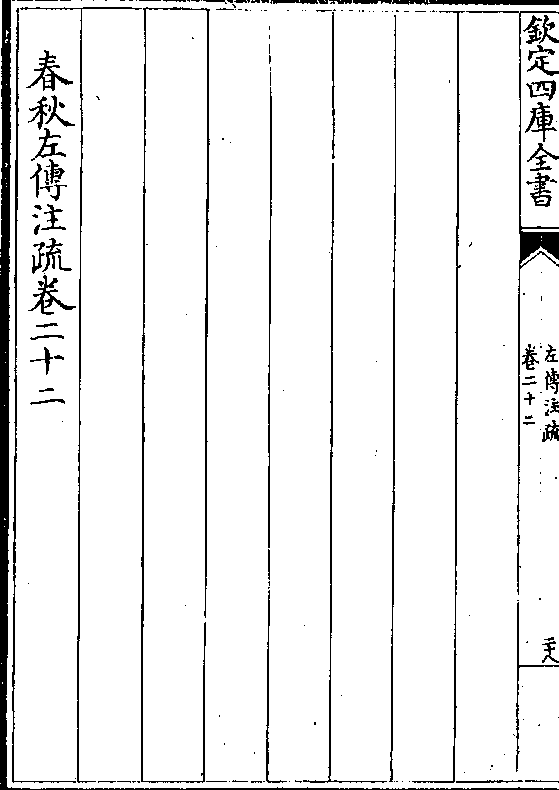 欽定四庫全書
左傳注疏
卷二十二
二十八
春秋左傳注疏卷二十二